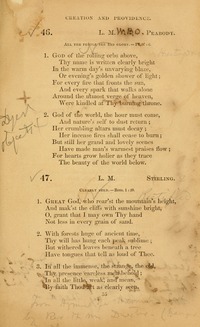 CREATION AND PROVIDENCE.
46. L. M. W.B.O. PEABODY.
1. GOD of the rolling orbs above,
Thy name is written clearly bright
In the warm day's unvarying blaze,
Or evening's golden shower of light;
For every fire that fronts the sun,
And every spark that walks alone
Around the utmost verge of heaven,
Were kindled at Thy burning throne.
2. God of the world, the hour must come,
And nature's self to dust return;
Her crumbling altars must decay;
Her incense fires shall cease to burn;
But still her grand and lovely scenes
Have made man's warmest praises flow;
For hearts grow holier as they trace
The beauty of the world below.
47. L. M. STERLING.
1. GREAT God, who roar'st the mountain's height,
And mak'st the cliffs with sunshine bright,
O, grant that I may own Thy hand
Not less in every grain of sand.
2. With forests huge of ancient time,
Thy will has hung each peak sublime;
But withered leaves beneath a tree
Have tongues that tell as loud of Thee.
3. In all the immense, the strange, the old,
Thy presence careless men behold;
In all the little, weak, and mean,
By faith Thou art as clearly seen.
54